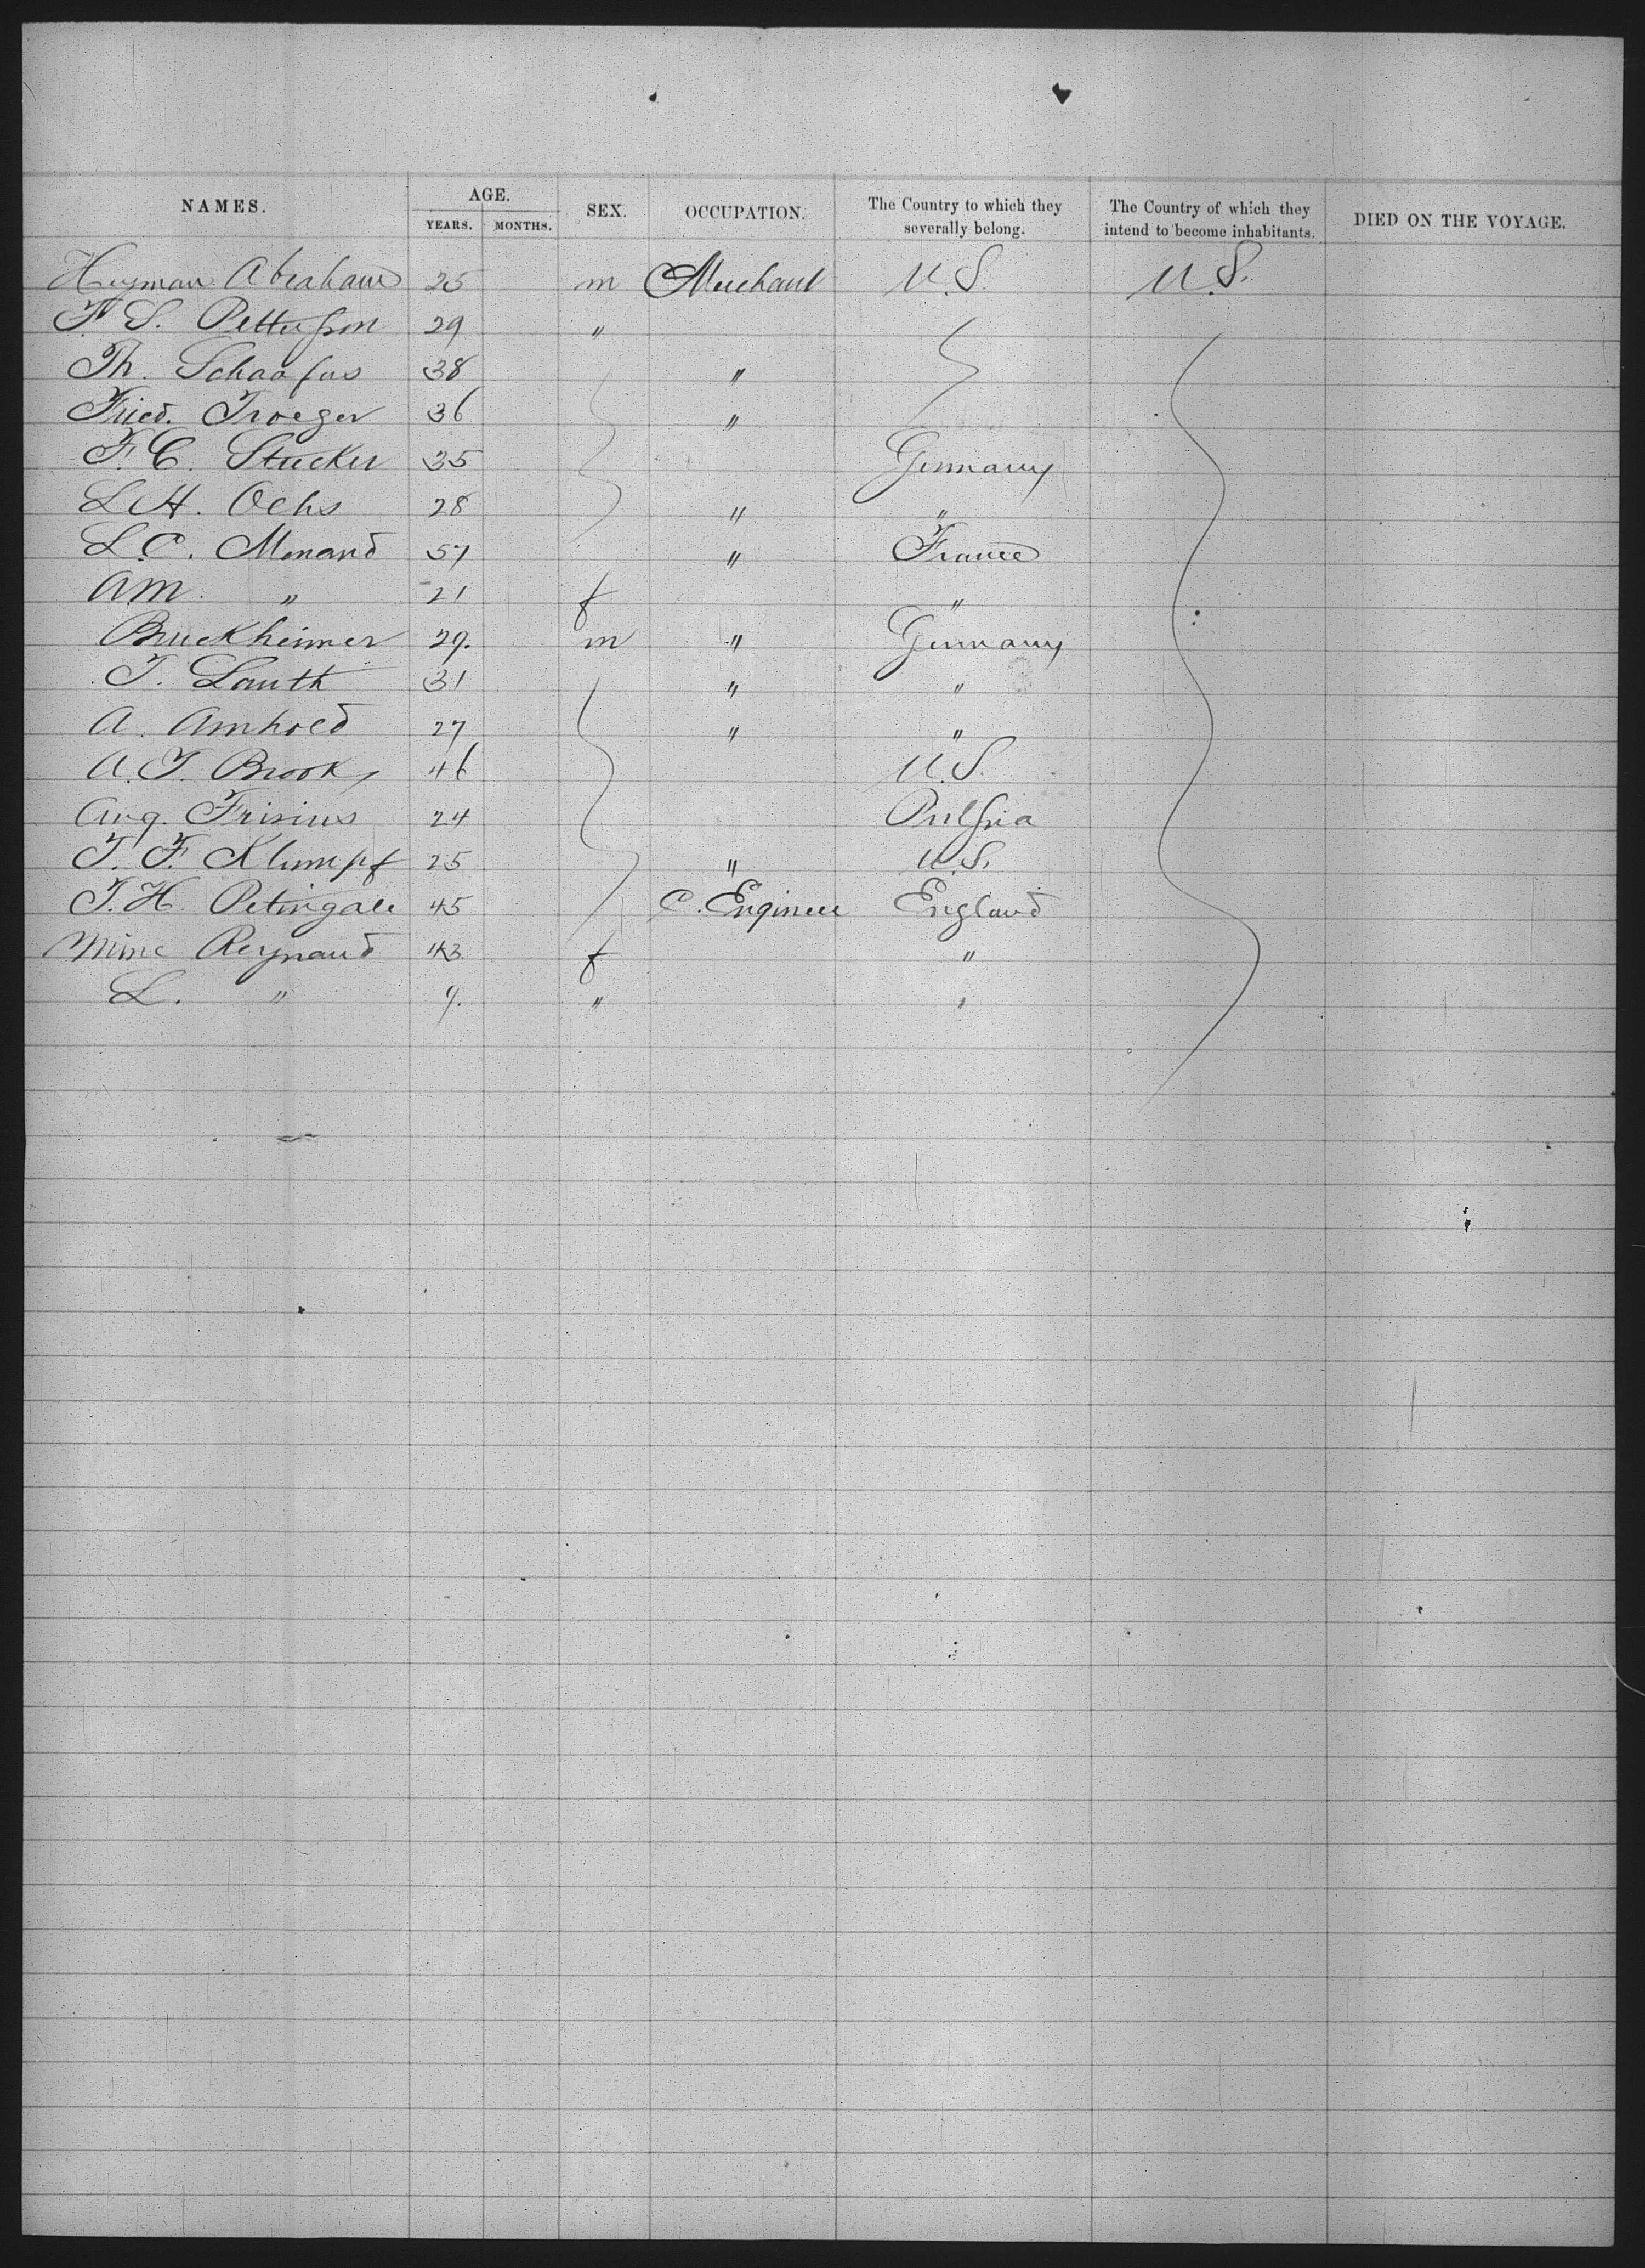 NAMES. AGE. SEX. OCCUPATION. The Country to which they severally belong. The Country of which they intend to become inhabitants. DIED ON THE VOYAGE.
YEARS. MONTHS.
Heyman Abraham 25 m Merchant U.S. U.S.
F. S. Pettersson 29 "
Th. Schaafus 38 "
Fried. Troeger 36 "
F. C. Stucker 35 Germany
L. H. Ochs 28 " "
L. C. Menand 57 " France
AM. " 21 f "
Bruckheimer 29. m " Germany
T. Lauth 31 " "
A. Amhold 27 " "
A. T. Brook 46 U.S.
Aug. Frisius 24 Prussia
T. F. Klumpf 25 " U.S.
T. H. Petingale 45 C. Engineer England
Mme Reynaud 43 f "
L. " 9. " "